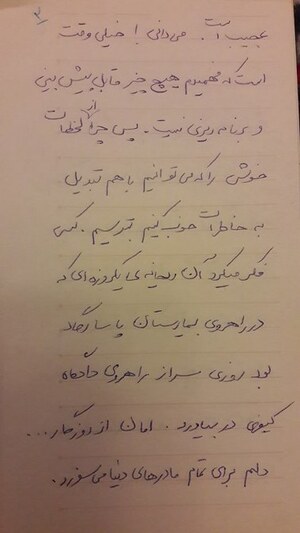 ۳
عجیب است. می‌دانی! خیلی وقت
است که فهمیدم هیچ چیز قابل پیش بینی
و برنامه ریزی نیست. پس چرا از لحظات
خوشی را که می توانیم با هم تبدیل
به خاطرات خوب کنیم بترسیم. کسی
فکر میکرد آن ریحانه ی یکروزه ای که
در راهروی بیمارستان پاسارگاد
بود روزی سر از راهروی دادگاه
کیفری در بیاورد. امان از روزگار...
دلم برای تمام مادرهای دنیا می سوزد.